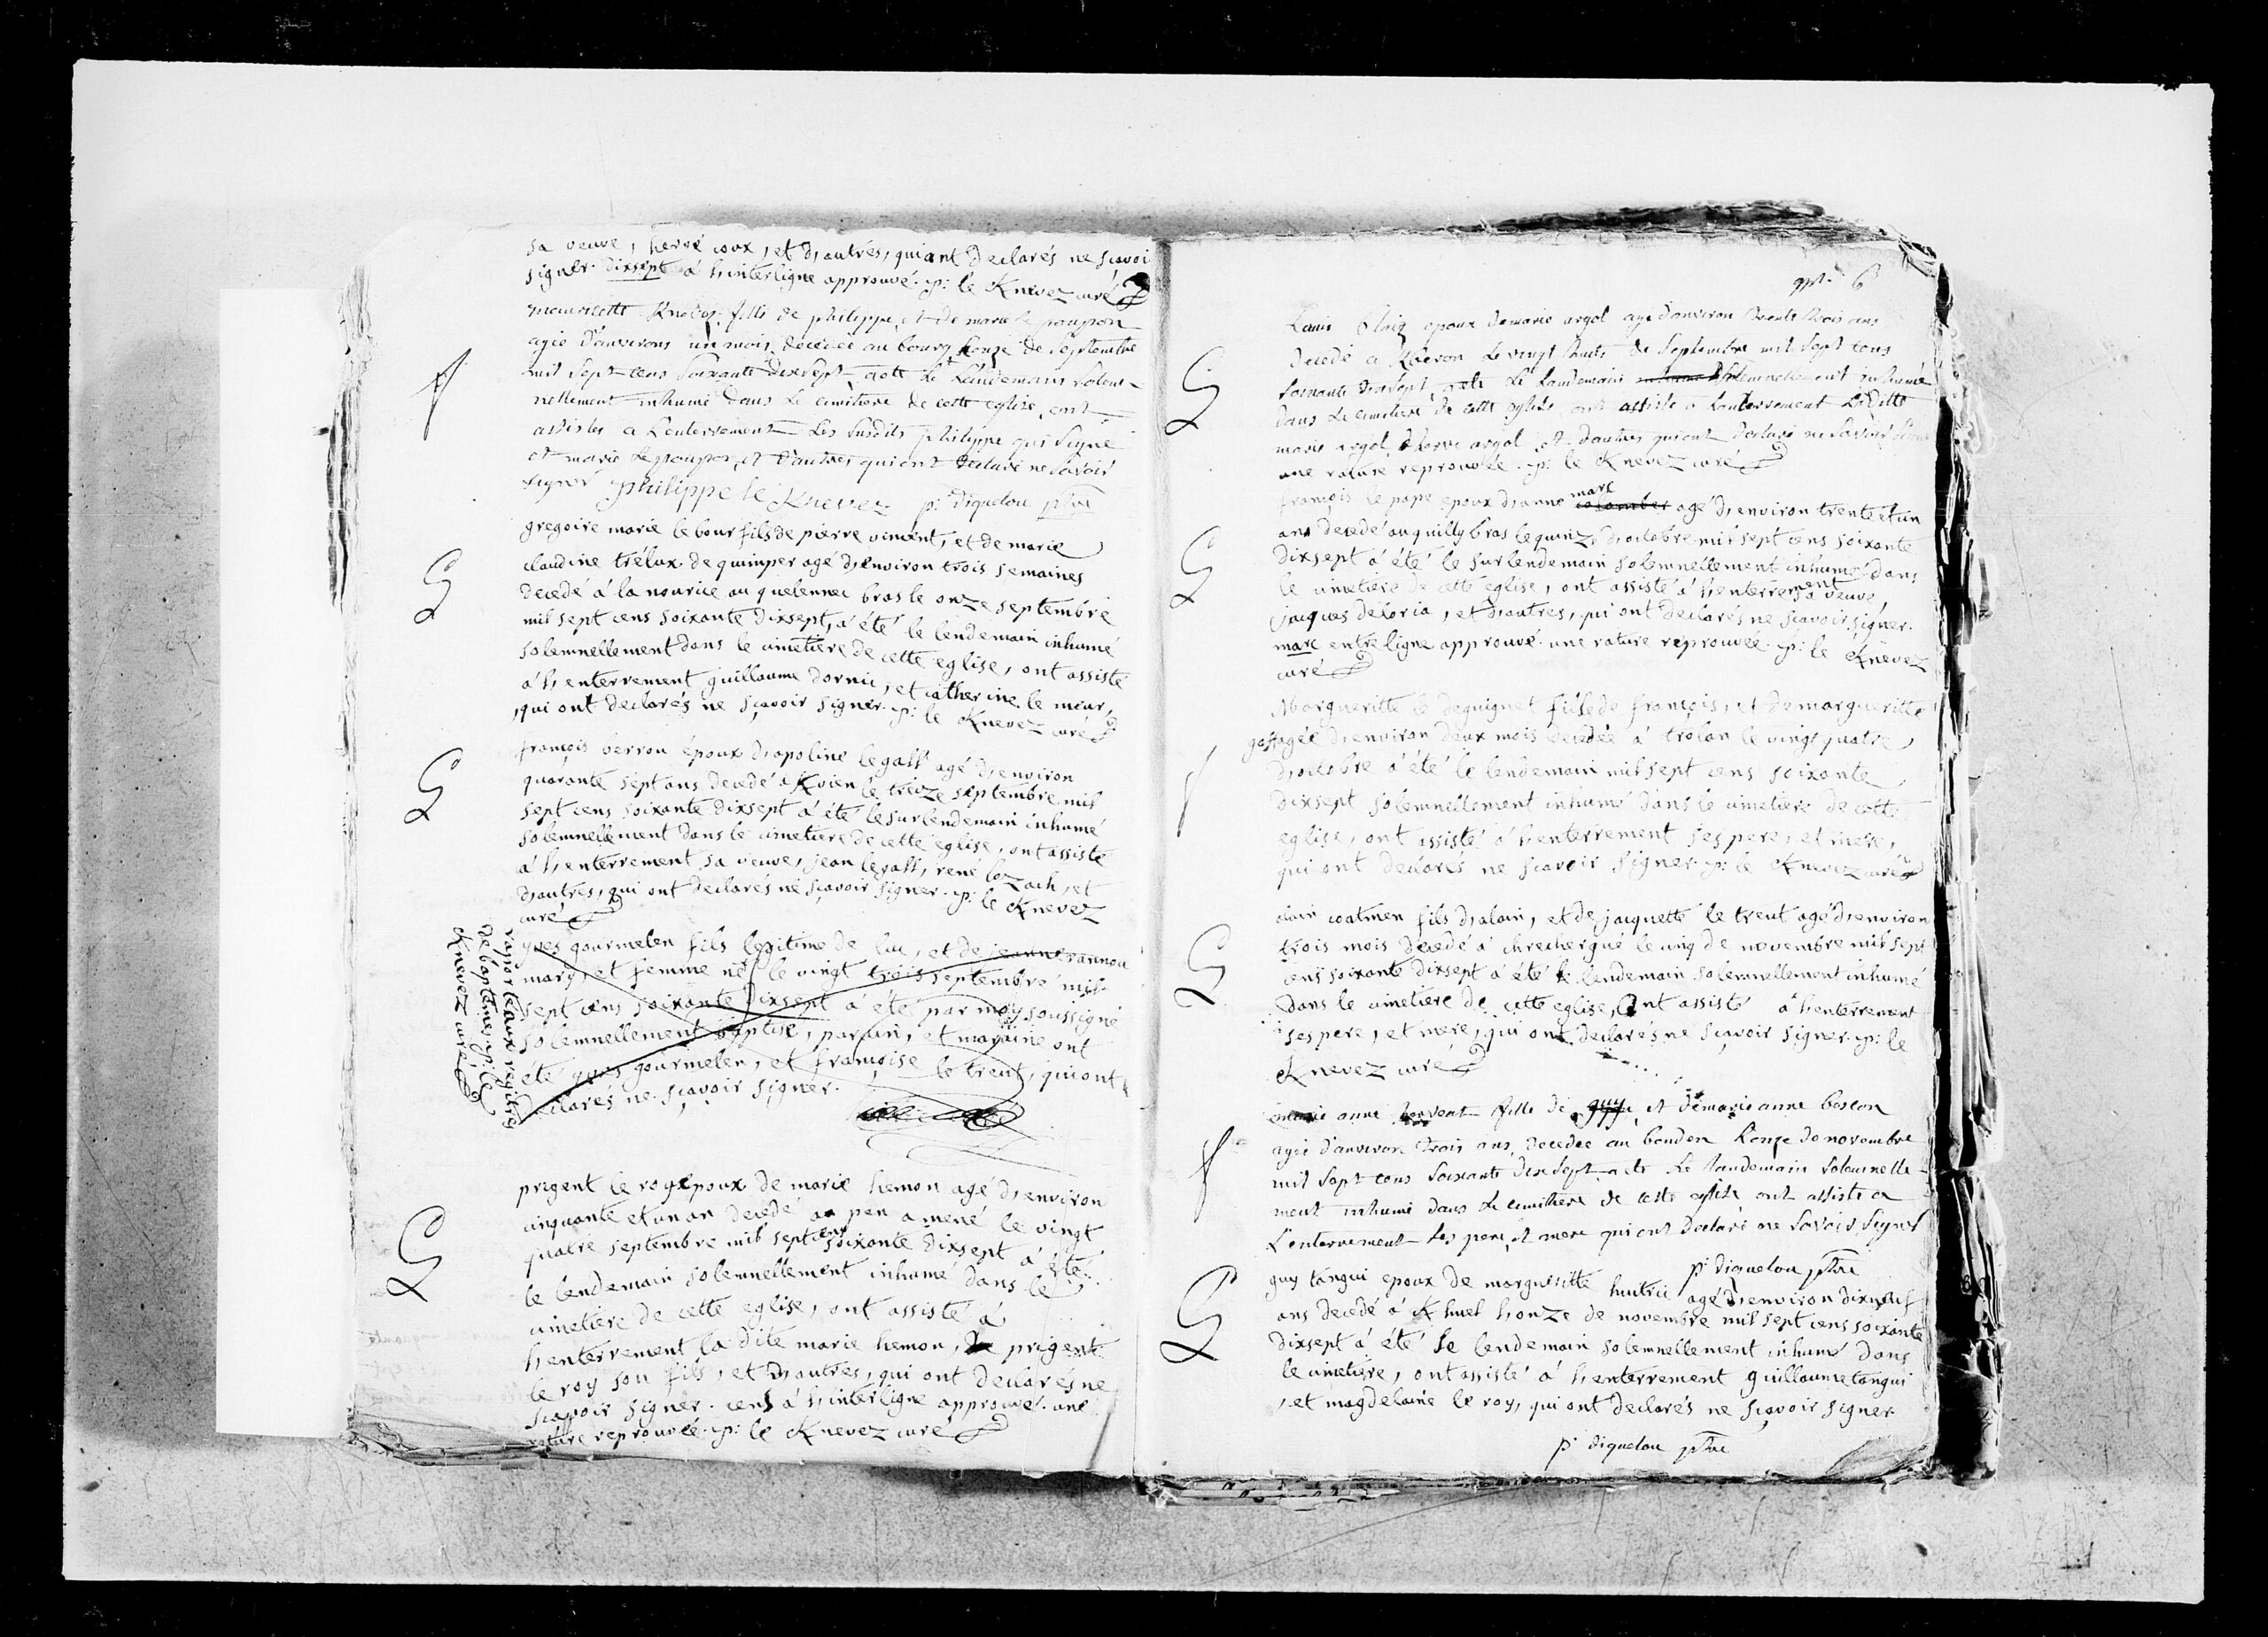 sa veuve, hervé coux, et d'autres, qui ont declarés ne scavoi
signer. dixsept á l'interligne approuvé. p: le Knevez curé
mauricette Knevez fille de philippe, et de marie le poupon
agée d'anvirons un mois, decedée au bourg l'onze de Septembre
mil Sept cens Soixante dixsept, a eté Le Landemain Solem-
nellement inhumé dans Le cimitiere de cette eglise, ont
assistes a L'enterrement Les Susdits philippe qui Signe
et marie Le poupon, et d'autres qui ont declaré ne Savoir
Signer philippe le Knevez p: diquelou ptre
G
gregoire marie le bour fils de pierre vincent, et de marie
claudine trélux de quimper agé d'environ trois semaines
decedé á la nourice au quelennec bras le onze septembre
mil sept cens soixante dixsept, á été le lendemain inhumé
solemnellement dans le cimetiere de cette eglise, ont assisté
á l'enterrement guillaume dornic, et catherine le meur,
qui ont declarés ne sçavoir signer. p: le Knevez curé
G
françois berrou époux d'apoline le gall agé d'environ
quarante sept ans decedé a Kvien le treize septembre mil
sept cens soixante dixsept á été le surlendemain inhumé
solemnellement dans le cimetiere de cette eglise, ont assisté
á l'enterrement sa veuve, jean le gall, rené lozach, et
d'autres, qui ont declarés ne sçavoir signer. p: le Knevez
curé
yves gourmelen fils legitime de luc, et de jeanne rannou
mary, et femme né le vingt trois septembre mil
sept cens soixante dixsept á été par moy soussigné
solemnellement baptisé, parain, et maraine ont
été yves gourmelen, et françoise le treut, qui ont
declarés ne sçavoir signer.
raporté aux regitres
de baptêmes. p: le
Knevez curé
G
prigent le roy époux de marie hemon agé d'environ
cinquante et un an decedé a pen a mené le vingt
quatre septembre mil sept cens soixante dixsept á été
le lendemain solemnellement inhumé dans le
cimetiere de cette eglise, ont assisté á
l'enterrement la dite marie hemon, prigent
le roy son fils, et d'autres, qui ont declarés ne
sçavoir signer. cens á l'interligne approuvé. une
rature reprouvée. p: le Knevez curé
6
G
Louis blaiz epoux de marie argol agé d'anviron trente trois ans
decedé a Le vingt huits de Septembre mil Sept cens
Soixante dixsept, a eté Le Landemain Solemnellement inhumé
dans Le cimitiere de cette eglise, ont assisté a Lanterrement La ditte
marie argol, herve argol, et d'autres qui ont declaré ne Savoir Signer
une rature reprouvée. p: le Knevez curé
G
françois le pape epoux d'anne marc colomber agé d'environ trente et un
ans decedé au quilly bras le quinze d'octobre mil sept cens soixante
dixsept á été le surlendemain solemnellement inhumé dans
le cimetiere de cette eglise, ont assisté á l'enterrement sa veuve,
jacques deloria, et d'autres, qui ont declarés ne sçavoir signer.
marc entre ligne approuvé. une rature reprouvée. p: le Knevez
curé
Margueritte le deguignet fille de françois, et de margueritte
goff agée d'environ deux mois decedée á trolan le vingt quatre
d'octobre á été le lendemain mil sept cens soixante
dixsept solemnellement inhumé dans le cimetiere de cette
eglise, ont assisté á l'enterrement ses pere, et mere,
qui ont declarés ne scavoir signer. p: le Knevez curé
G
alain coatmen fils d'alain, et de jacquette le treut agé d'environ
trois mois decedé á chrechergué le cinq de novembre mil sept
cens soixante dixsept á été le lendemain solemnellement inhumé
dans le cimetiere de cette eglise, ont assisté á l'enterrement
ses pere, et mere, qui ont declarés ne sçavoir signer. p: le
Knevez curé
marie anne fille de guy, et de marie anne boscon
agée d'anviron trois ans, decedée au bendon l'onze de novembre
mil Sept cens Soixante dix Sept a eté Le landemain Solemnelle-
ment inhumé dans Le cimitiere de cette eglise ont assisté a
L'enterrement Les pere, et mere qui ont declaré ne Savoir Signer
p: diquelou ptre
G
guy tangui epoux de margueritte huitric agé d'environ dixneuf
ans decedé á Khuel l'onze de novembre mil sept cens soixante
dixsept á été le lendemain solemnellement inhumé dans
le cimetiere, ont assisté á l'enterrement guillaume tangui
, et magdelaine le roy, qui ont declarés ne sçavoir signer.
p: diquelou ptre